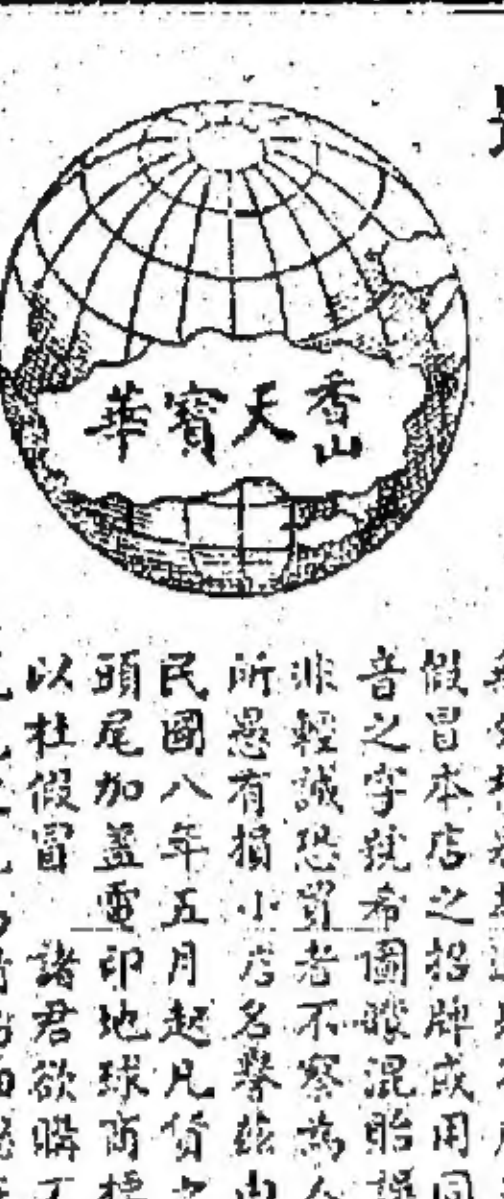 香山
天寶華
假冒本店之招牌或用同
音之字號希圖矇混貽誤
非輕誠恐買者不察為人
所愚有損小店名譽茲由
民國八年五月起凡貨之
頭尾加蓋電印地球商標
以杜假冒 諸君欲購